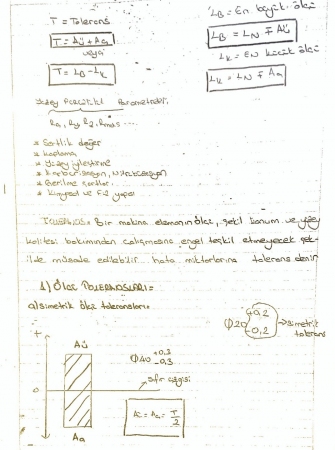 T = Tolerans
T = Aü + Aa
veya
T = LB - LK
LB = En büyük ölçü
LB = LN ∓ Aü
LK = En küçük ölçü
LK = LN ∓ Aa
Yüzey Pürüzlülük Parametreleri.
Ra, Ry, Rz, Rmax ....
* Sertlik değer
* Kaplama
* Yüzey iyileştirme
* Karbürizasyon, Nitrürasyon
* Gerilme şartları
* Kimyasal ve Fiz yapısı
TOLERANS = Bir makina elemanın ölçü, şekil konum ve yüzey
kalitesi bakımından çalışmasına engel teşkil etmeyecek şek-
ilde müsade edilebilir hata miktarlarına tolerans denir
1) ÖLÇÜ TOLERANSLARI =
a) Simetrik ölçü toleransları =
Ø20 +0,2 -0,2 → simetrik
tolerans
+
Aü
Ø40 +0,3 -0,3
0
sıfır çizgisi
Aü = Aa = T/2
-
Aa